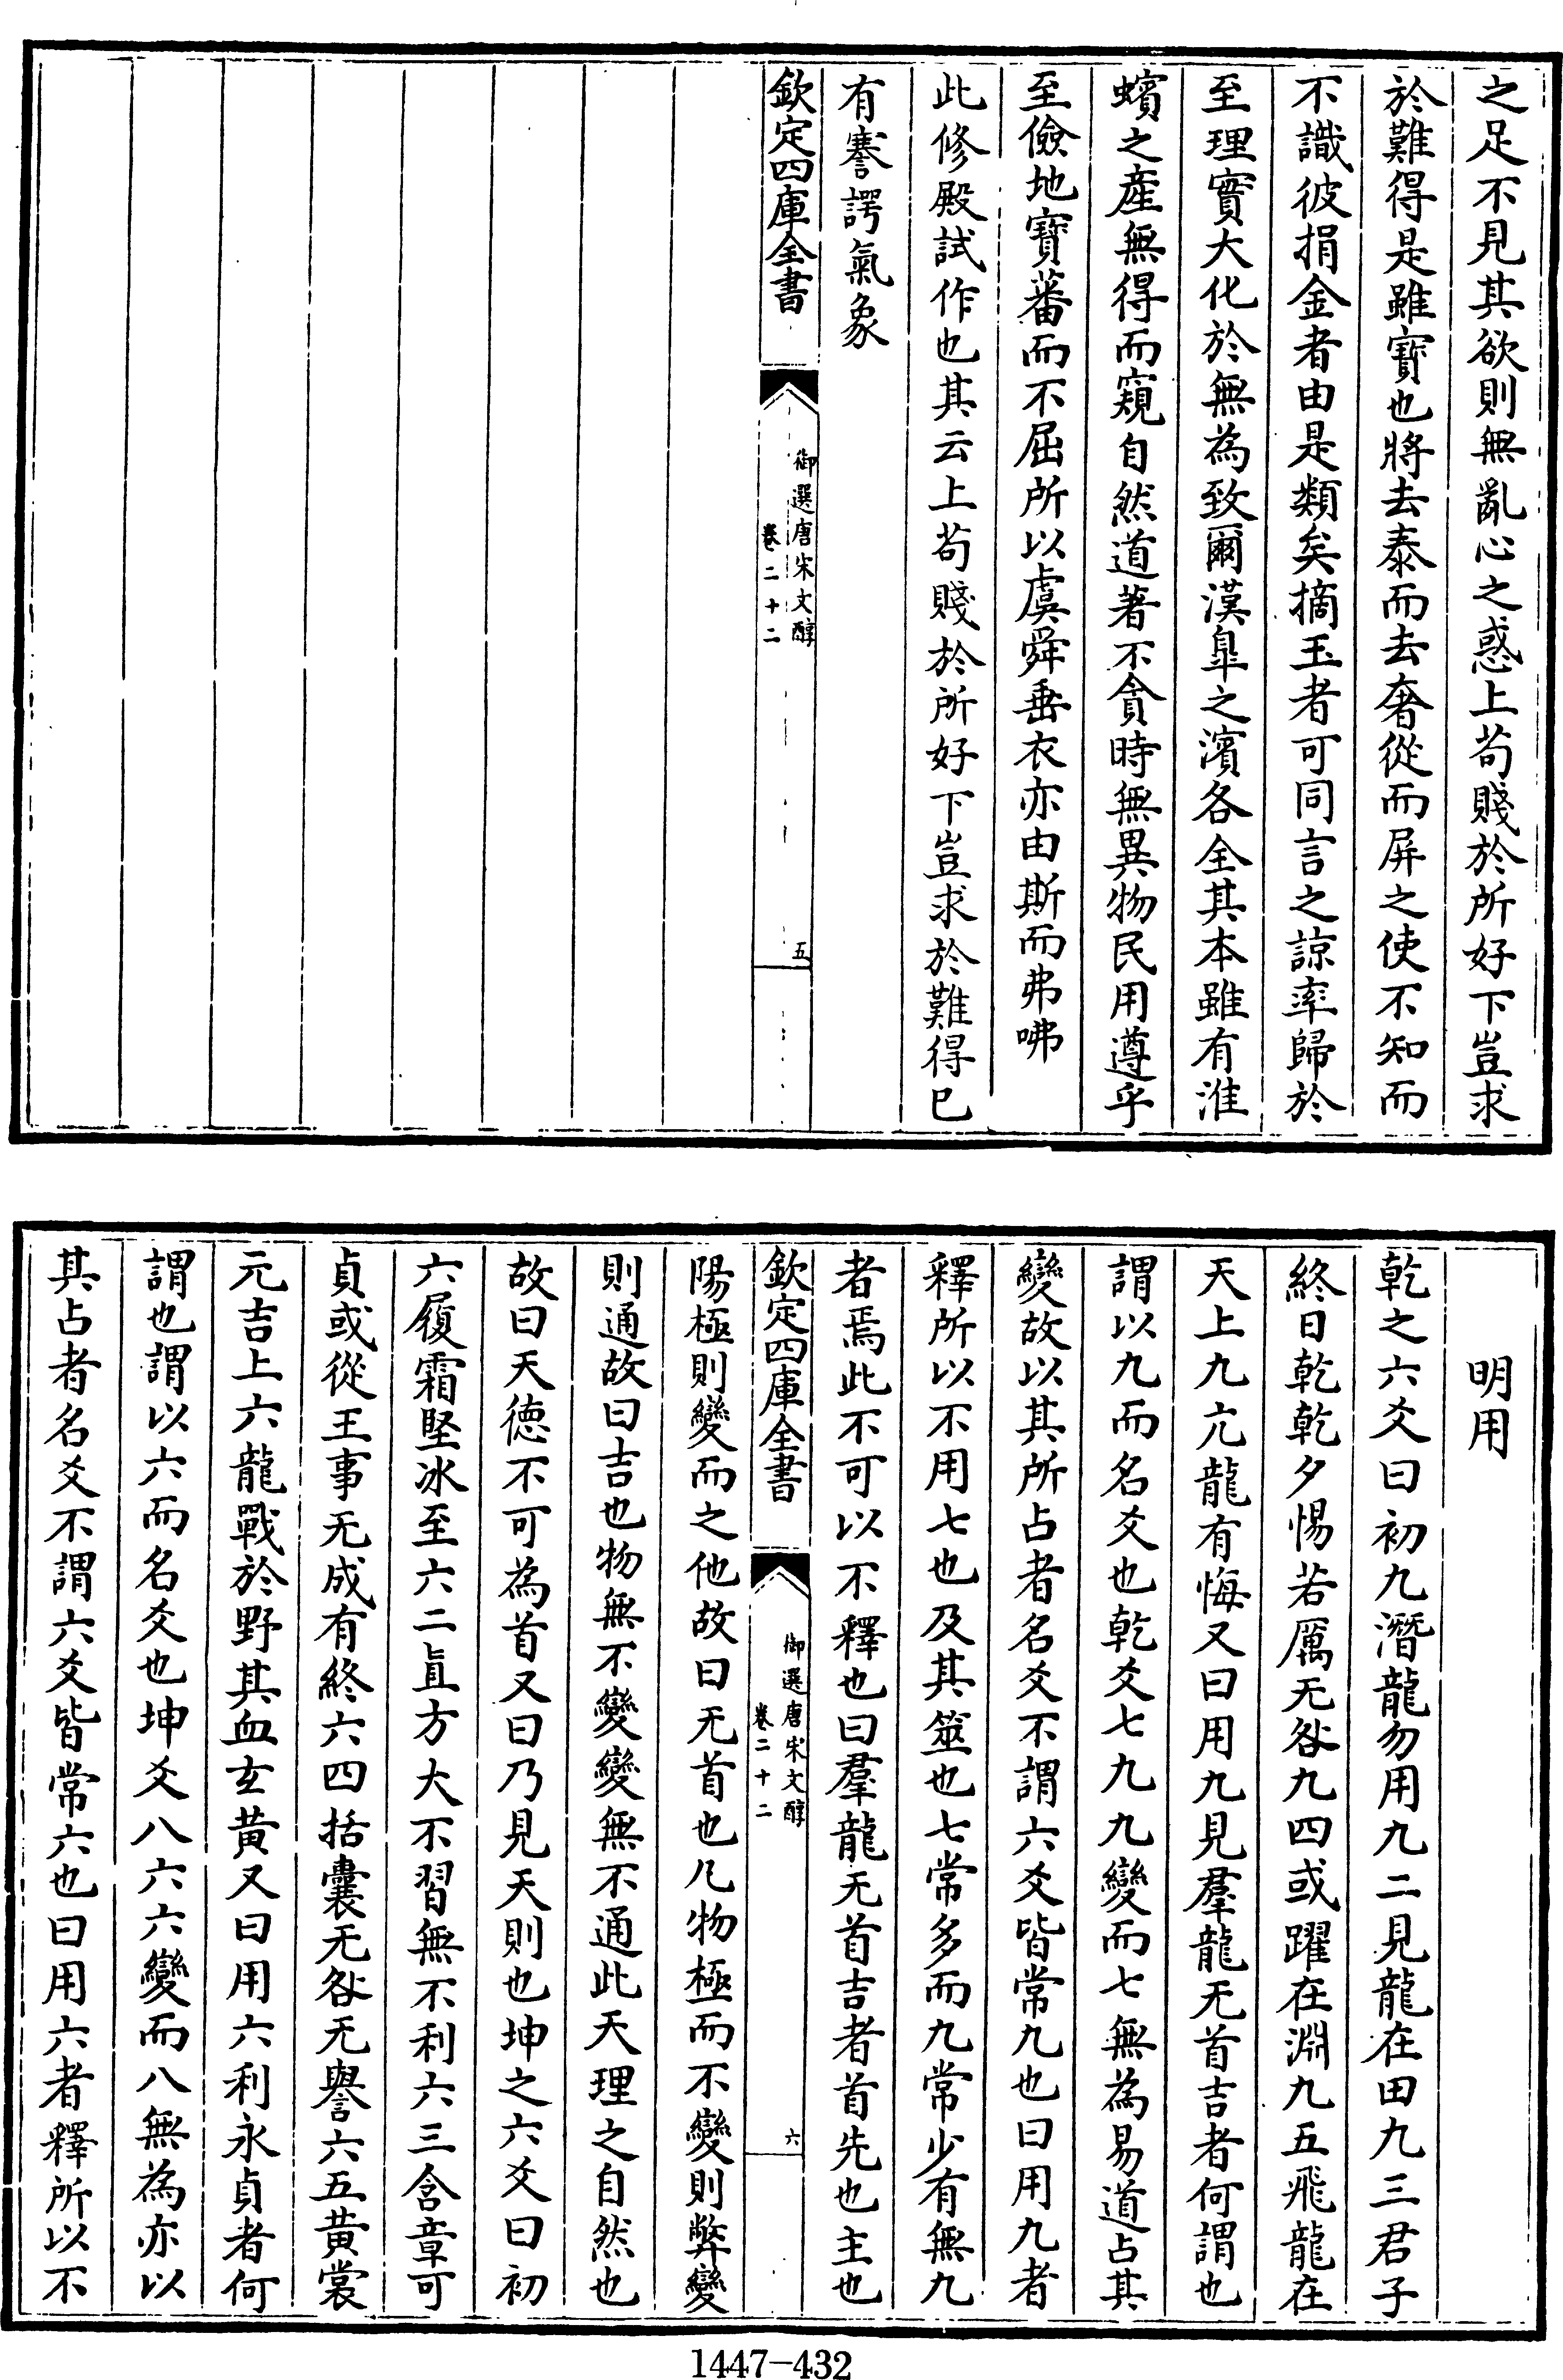 之足不見其欲則無亂心之惑上茍賤於所好下豈求
於難得是雖寶也將去泰而去奢從而屏之使不知而
不識彼捐金者由是類矣摘玉者可同言之諒率歸於
至理實大化於無為致爾漢臯之濱各全其本雖有淮
蠙之產無得而窺自然道著不貪時無異物民用遵乎
至儉地寶蕃而不屈所以虞舜垂衣亦由斯而弗咈
此修殿試作也其云上茍賤於所好下豈求於難得已
有謇諤氣象
欽定四庫全書
御選唐宋文醇
卷二十二
五
明用
乾之六爻曰初九潛龍勿用九二見龍在田九三君子
終日乾乾夕惕若厲无咎九四或躍在淵九五飛龍在
天上九亢龍有悔又曰用九見羣龍无首吉者何謂也
謂以九而名爻也乾爻七九九變而七無為易道占其
變故以其所占者名爻不謂六爻皆常九也曰用九者
釋所以不用七也及其筮也七常多而九常少有無九
者焉此不可以不釋也曰羣龍无首吉者首先也主也
欽定四庫全書
御選唐宋文醇
卷二十二
六
陽極則變而之他故曰无首也凡物極而不變則弊變
則通故曰吉也物無不變變無不通此天理之自然也
故曰天德不可為首又曰乃見天則也坤之六爻曰初
六履霜堅冰至六二直方大不習無不利六三含章可
貞或從王事无成有終六四括囊无咎无譽六五黃裳
元吉上六龍戰於野其血玄黃又曰用六利永貞者何
謂也謂以六而名爻也坤爻八六六變而八無為亦以
其占者名爻不謂六爻皆常六也曰用六者釋所以不
1447-432